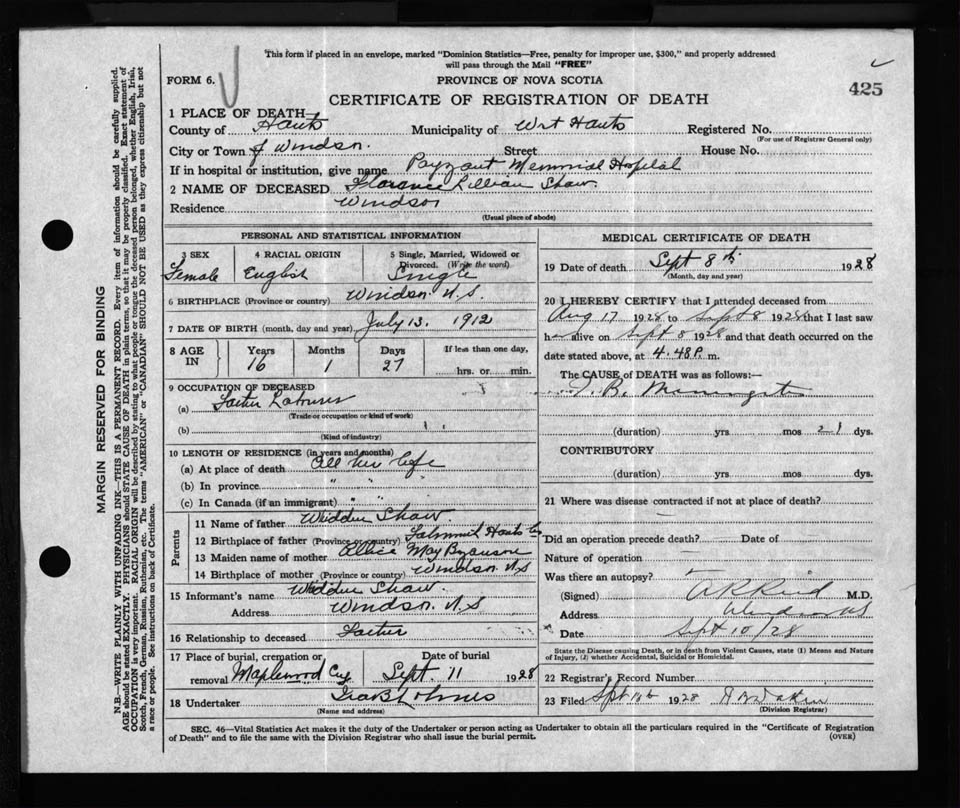 This form if placed in an envelope, marked "Dominion Statistics—Free, penalty for improper use, $300," and properly addressed
will pass through the Mail "FREE"
FORM 6.
PROVINCE OF NOVA SCOTIA
425
CERTIFICATE OF REGISTRATION OF DEATH
1 PLACE OF DEATH—
County of Hants Municipality of West Hants Registered No.
(For use of Registrar General only)
City or Town of Windsor. Street House No.
If in hospital or institution, give name Payzant Memorial Hospital
2 NAME OF DECEASED Florance Lillian Shaw
Residence Windsor
(Usual place of abode)
PERSONAL AND STATISTICAL INFORMATION
3 SEX 4 RACIAL ORIGIN 5 Single, Married, Widowed or
Divorced. (Write the word)
Female English Single
6 BIRTHPLACE (Province or country) Windsor N.S.
7 DATE OF BIRTH (month, day and year) July 13. 1912
8 AGE IN Years Months Days If less than one day,
16 1 27 hrs. or min.
9 OCCUPATION OF DECEASED
(a)
(Trade or occupation or kind of work)
(b)
(Kind of industry)
10 LENGTH OF RESIDENCE (in years and months)
(a) At place of death All her life
(b) In province " "
(c) In Canada (if an immigrant) " "
Parents
11 Name of father Whidden Shaw.
12 Birthplace of father (Province or country) Falmouth Hants Co
13 Maiden name of mother Allice May
14 Birthplace of mother (Province or country) Windsor N.S
15 Informant's name Whidden Shaw.
Address Windsor N.S
16 Relationship to deceased Father
17 Place of burial, cremation or
removal Maplewood Cem Date of burial Sept. 11 1928
18 Undertaker
(Name and address)
MEDICAL CERTIFICATE OF DEATH
19 Date of death Sept 8th 1928
(Month, day and year)
20 I HEREBY CERTIFY that I attended deceased from
Aug 17 1928 to Sept 8 1928 that I last saw
h alive on Sept 8 1928 and that death occurred on the
date stated above, at 4.48 P. m.
The CAUSE of DEATH was as follows:—
T. B. Meningitis
(duration) yrs mos 21 dys.
CONTRIBUTORY
(duration) yrs mos dys.
21 Where was disease contracted if not at place of death?
Did an operation precede death? Date of
Nature of operation
Was there an autopsy?
(Signed) A R Reid M.D.
Address Windsor NS
Date Sept 10/28
State the Disease causing Death, or in death from Violent Causes, state (1) Means and Nature
of Injury, (2) whether Accidental, Suicidal or Homicidal.
22 Registrar's Record Number
23 Filed Sept 1928
(Division Registrar)
SEC. 46—Vital Statistics Act makes it the duty of the Undertaker or person acting as Undertaker to obtain all the particulars required in the "Certificate of Registration
of Death" and to file the same with the Division Registrar who shall issue the burial permit.
(OVER)
MARGIN RESERVED FOR BINDING
N.B.—WRITE PLAINLY WITH UNFADING INK—THIS IS A PERMANENT RECORD. Every item of information should be carefully supplied.
AGE should be stated EXACTLY. PHYSICIANS should STATE CAUSE OF DEATH in plain terms, so that it may be properly classified. Exact statement of
OCCUPATION is very important. RACIAL ORIGIN will be described by stating to what people or tongue the deceased person belonged, whether English, Irish,
Scotch, French, German, Russian, Ruthenian, etc. The terms "AMERICAN" or "CANADIAN" SHOULD NOT BE USED as they express citizenship but not
a race or people. See instructions on back of Certificate.